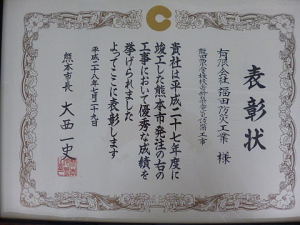 表彰状
有限会社 福田防災工業 様
貴社は平成二十七年度に
竣工した熊本市発注の右の
工事において優秀な成績を
挙げられました
よってここに表彰します
平成二十八年七月二十九日
熊本市長 大西一史